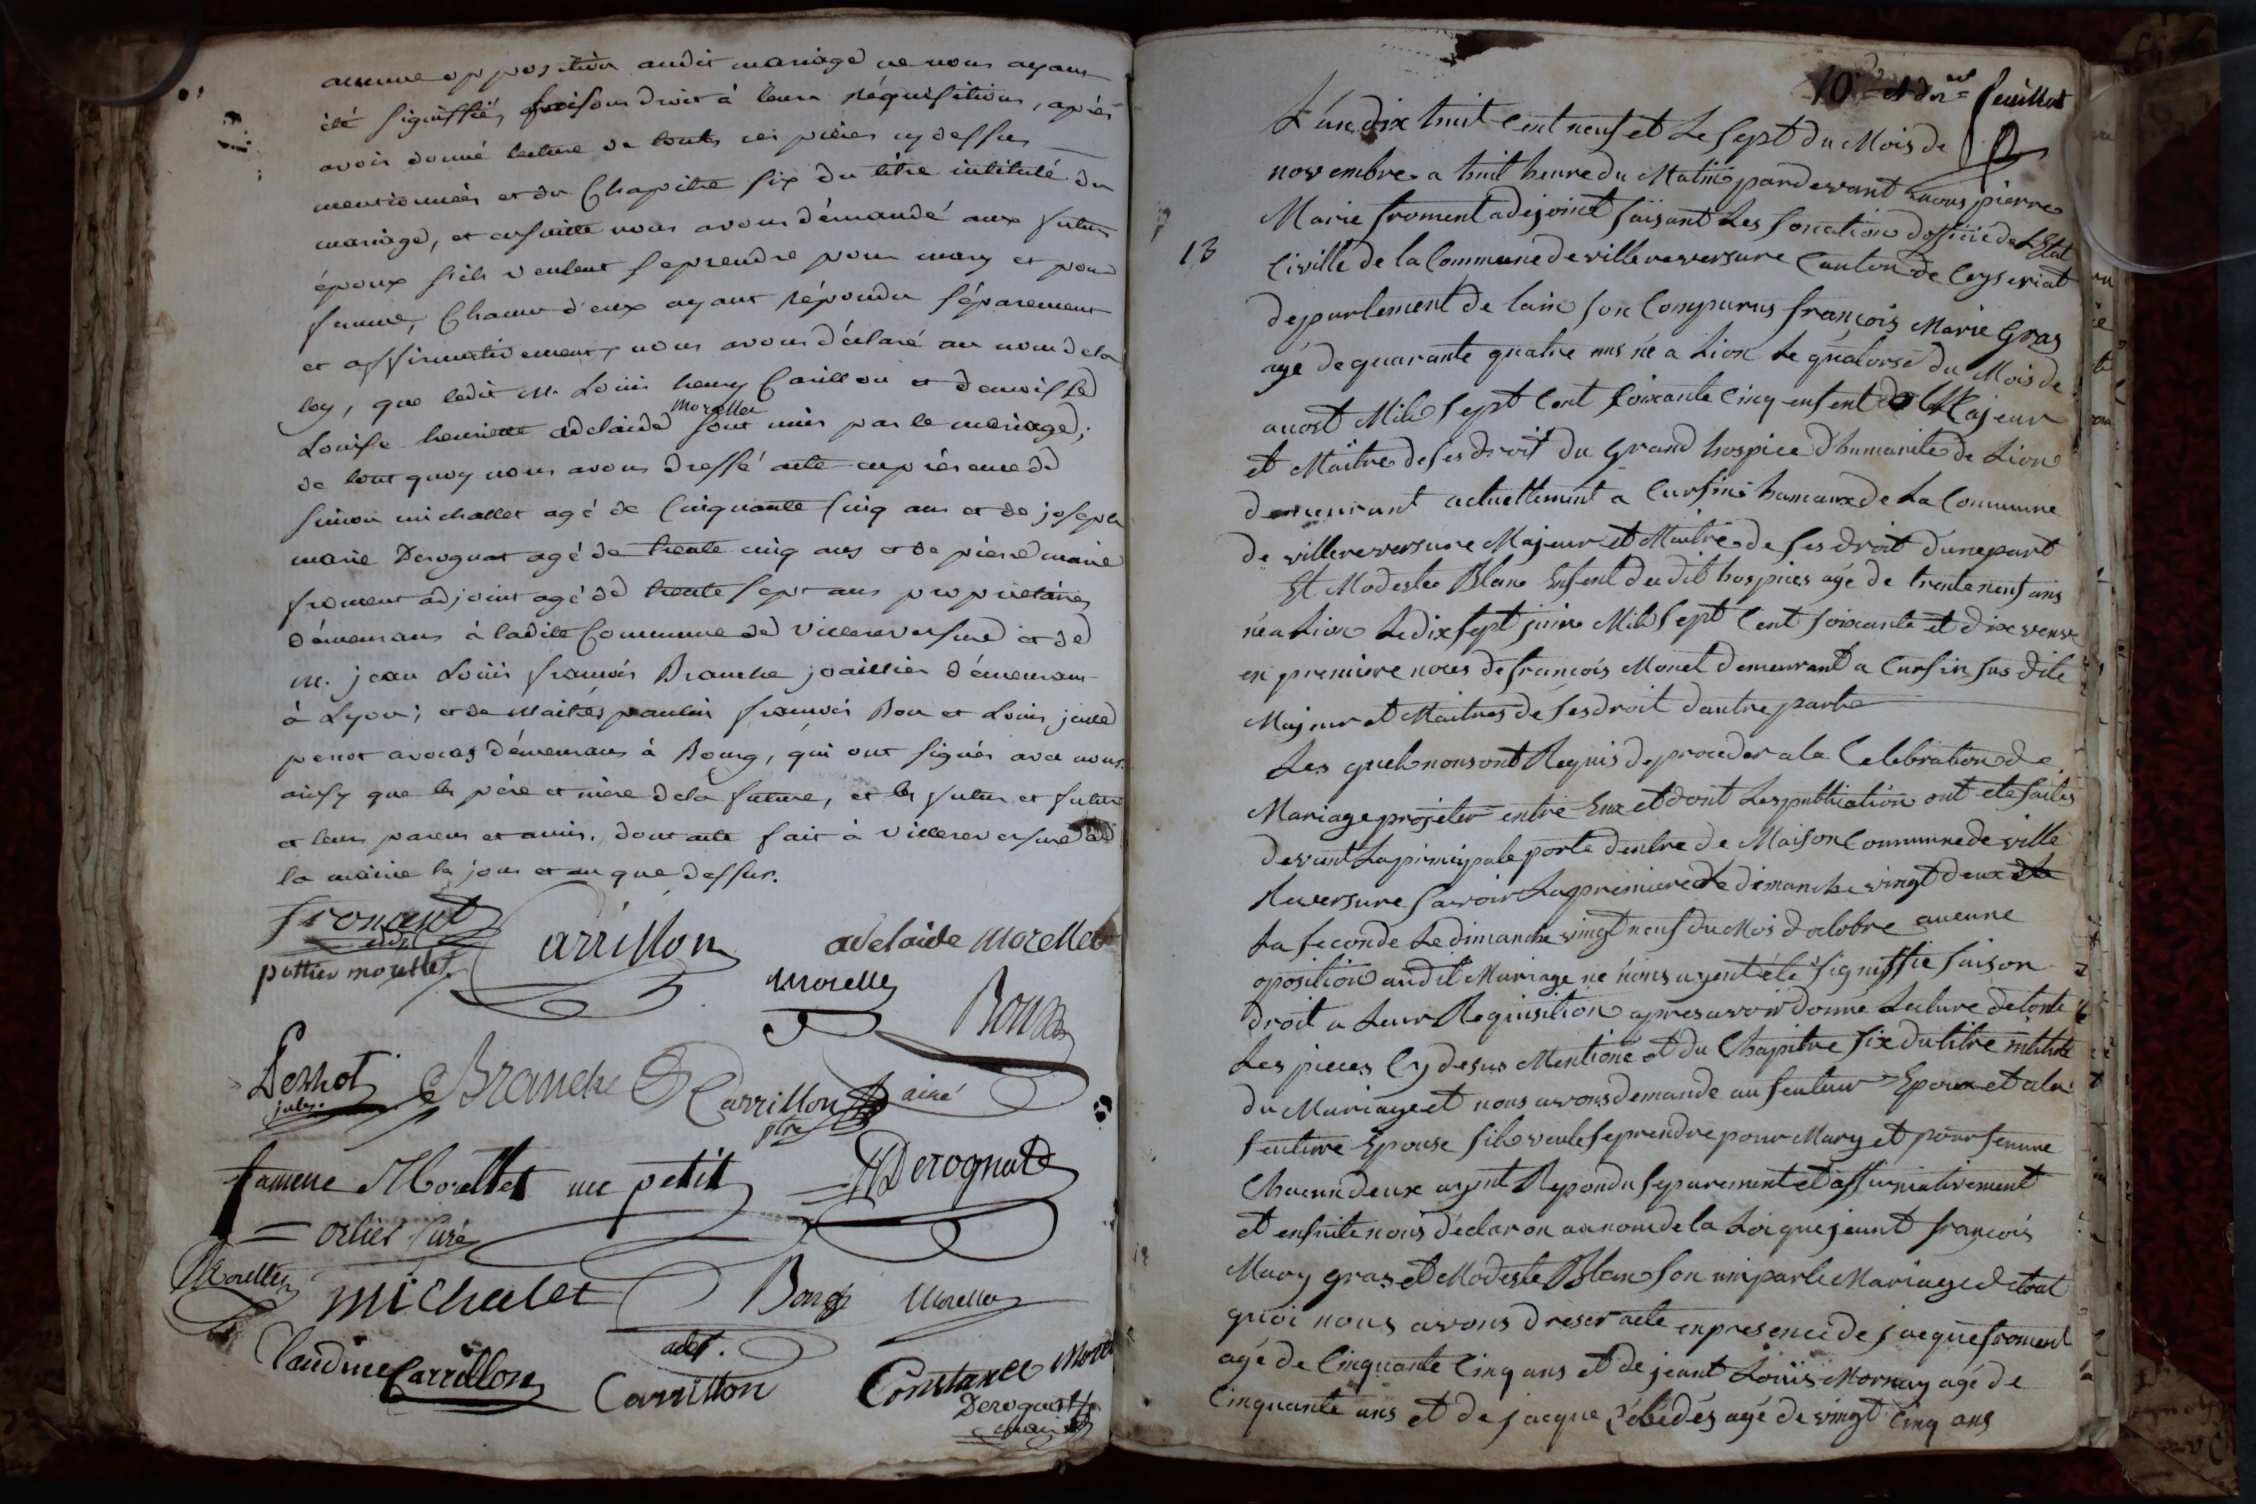 aucune opposition audit mariage ne nous ayant
été signiffiée, faisons droit à leurs réquisitions, après
avoir donné lecture de toutes les pièces cy dessus
mentionnées et du Chapitre six du titre intitulé du
mariage, et ensuitte nous avons démandé aux futurs
époux s'ils veulent se prendre pour mary et pour
femme, Chacun d'eux ayant répondu séparement
et affirmativement, nous avons déclaré au nom de la
loy, que ledit M. Louis henry Carillon et demoiselle
Morellet
Louise henriette adelaide sont unis par le mariage;
de tout quoy nous avons dressé acte en présence de
simon michallet agé de Cinquante Cinq ans et de joseph
marie Derognat agé de trente cinq ans et de pierre marie
froment adjoint agé de trente sept ans propriétaires
démeurans à ladite Commune de villereversure et de
M. jean Louis francois Branche joaillier démeurant
à Lyon; et de Maitres paulin francois Bon et Louis jules
perrot avocas démeurans à Bourg, qui ont signés avec nous
ainsy que les père et mère de la future, et les futur et future
et leurs parens et amis. dont acte fait à villereversure à
la mairie les jour et an que dessus.
froment
adj
Carrillon
adelaide Morellet
pottier morellet
Morellet
Bon
Perrot
jules
Branche
Carrillon
ptre
ainé
famme Morellet née petit
JM Derognat
orlier Curé
Morellet
Michalet
Bon
Morellet
adel.
Claudine Carrillon
Carrillon
Constance Morel
Derognat
10e et der feuillet
L'an dix huit Cent neuf et Le sept du Mois de
novembre a huit heure du Matin pardevant nous pierre
Marie froment adejoinct faisant Les fonction doffice de LEtat
13
Civille de la Commune de villereversure Canton de Ceyseriat
departement de lain son Comparus françois Marie Gras
agé de quarante quatre ans né a Lion Le quatorse du Mois de
auost Mile sept Cent soixante Cinq enfent Majeur
et Maitre de ses droit du Grand hospice d'humanite de Lion
demeurant actuellement a Cursin hameaux de La Commune
de villereversure Majeur et Maitre de ses droit d'une part
Et Modeste Blanc Enfent du dit hospices agé de trente neuf ans
né a Lion Le dix sept juin Mile sept Cent soixante et dix veuve
en premiere noces de francois Monet demeurant a Cursin sus dite
Majeur et Maitres de ses droit d'autre part
Les quels nous ont Requis de proceder a la Celebration de
Mariage projeter entre Eux et dont Les publication ont ete faites
devant La principale porte dentre de Maison Commune de ville
Reversure savoir La premiere Le dimanche vingt deux
La seconde Le dimanche vingt neuf du Mois doctobre aucune
oposition audit Mariage ne nous ayent été signiffie faison
droit a Leur Requisition apres avoir donné Lecture de toute
Les pieces Cy desus Mentioné et du Chapitre six du titre intitulé
du Mariage et nous avons demande au feuteur Epoux et a la
feuture Epouse sile veule se prendre pour Mary et pour femme
Chacun deux ayent Repondu separement et affirmativement
et ensuite nous déclaron au nom de la Loi que jeant francois
Mary gras et Modeste Blanc son uni par le Mariage de tout
quoi nous avons dreser acte en presence de jacque froment
agé de Cinquante Cinq ans et de jeant Louis Mornay agé de
Cinquante ans et de jacque Zébédés agé de vingt Cinq ans